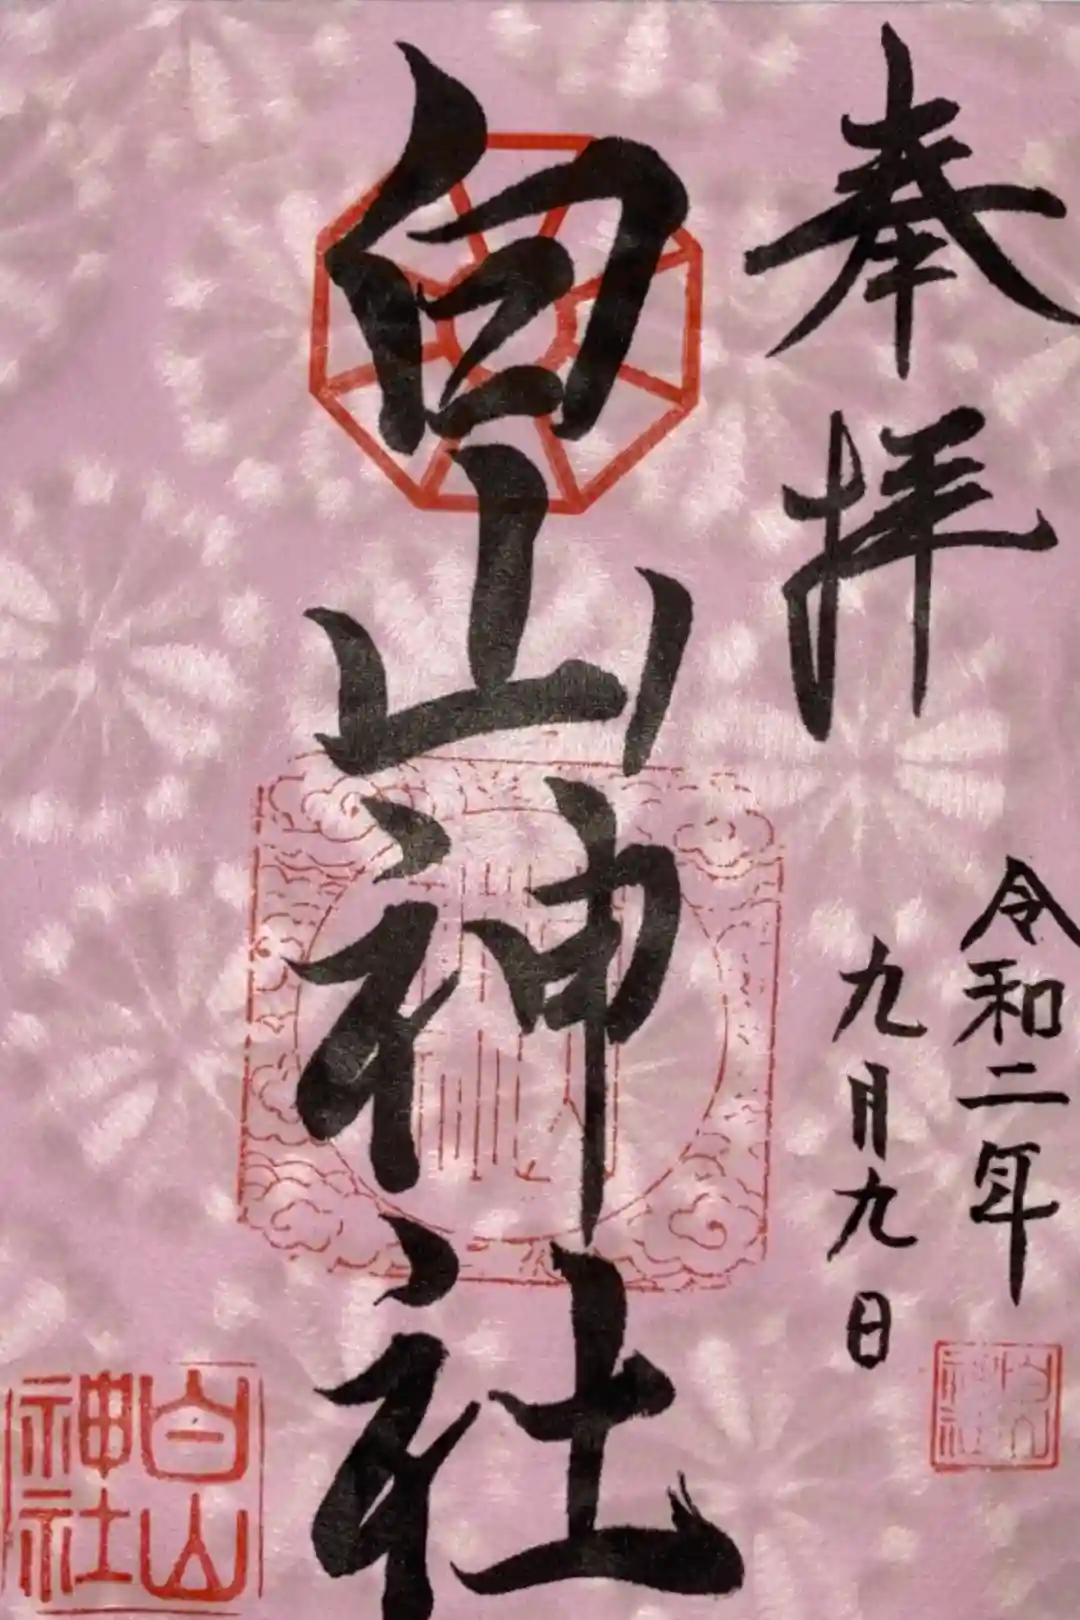 奉拝
令和二年
九月九日
白山神社
白山
神社